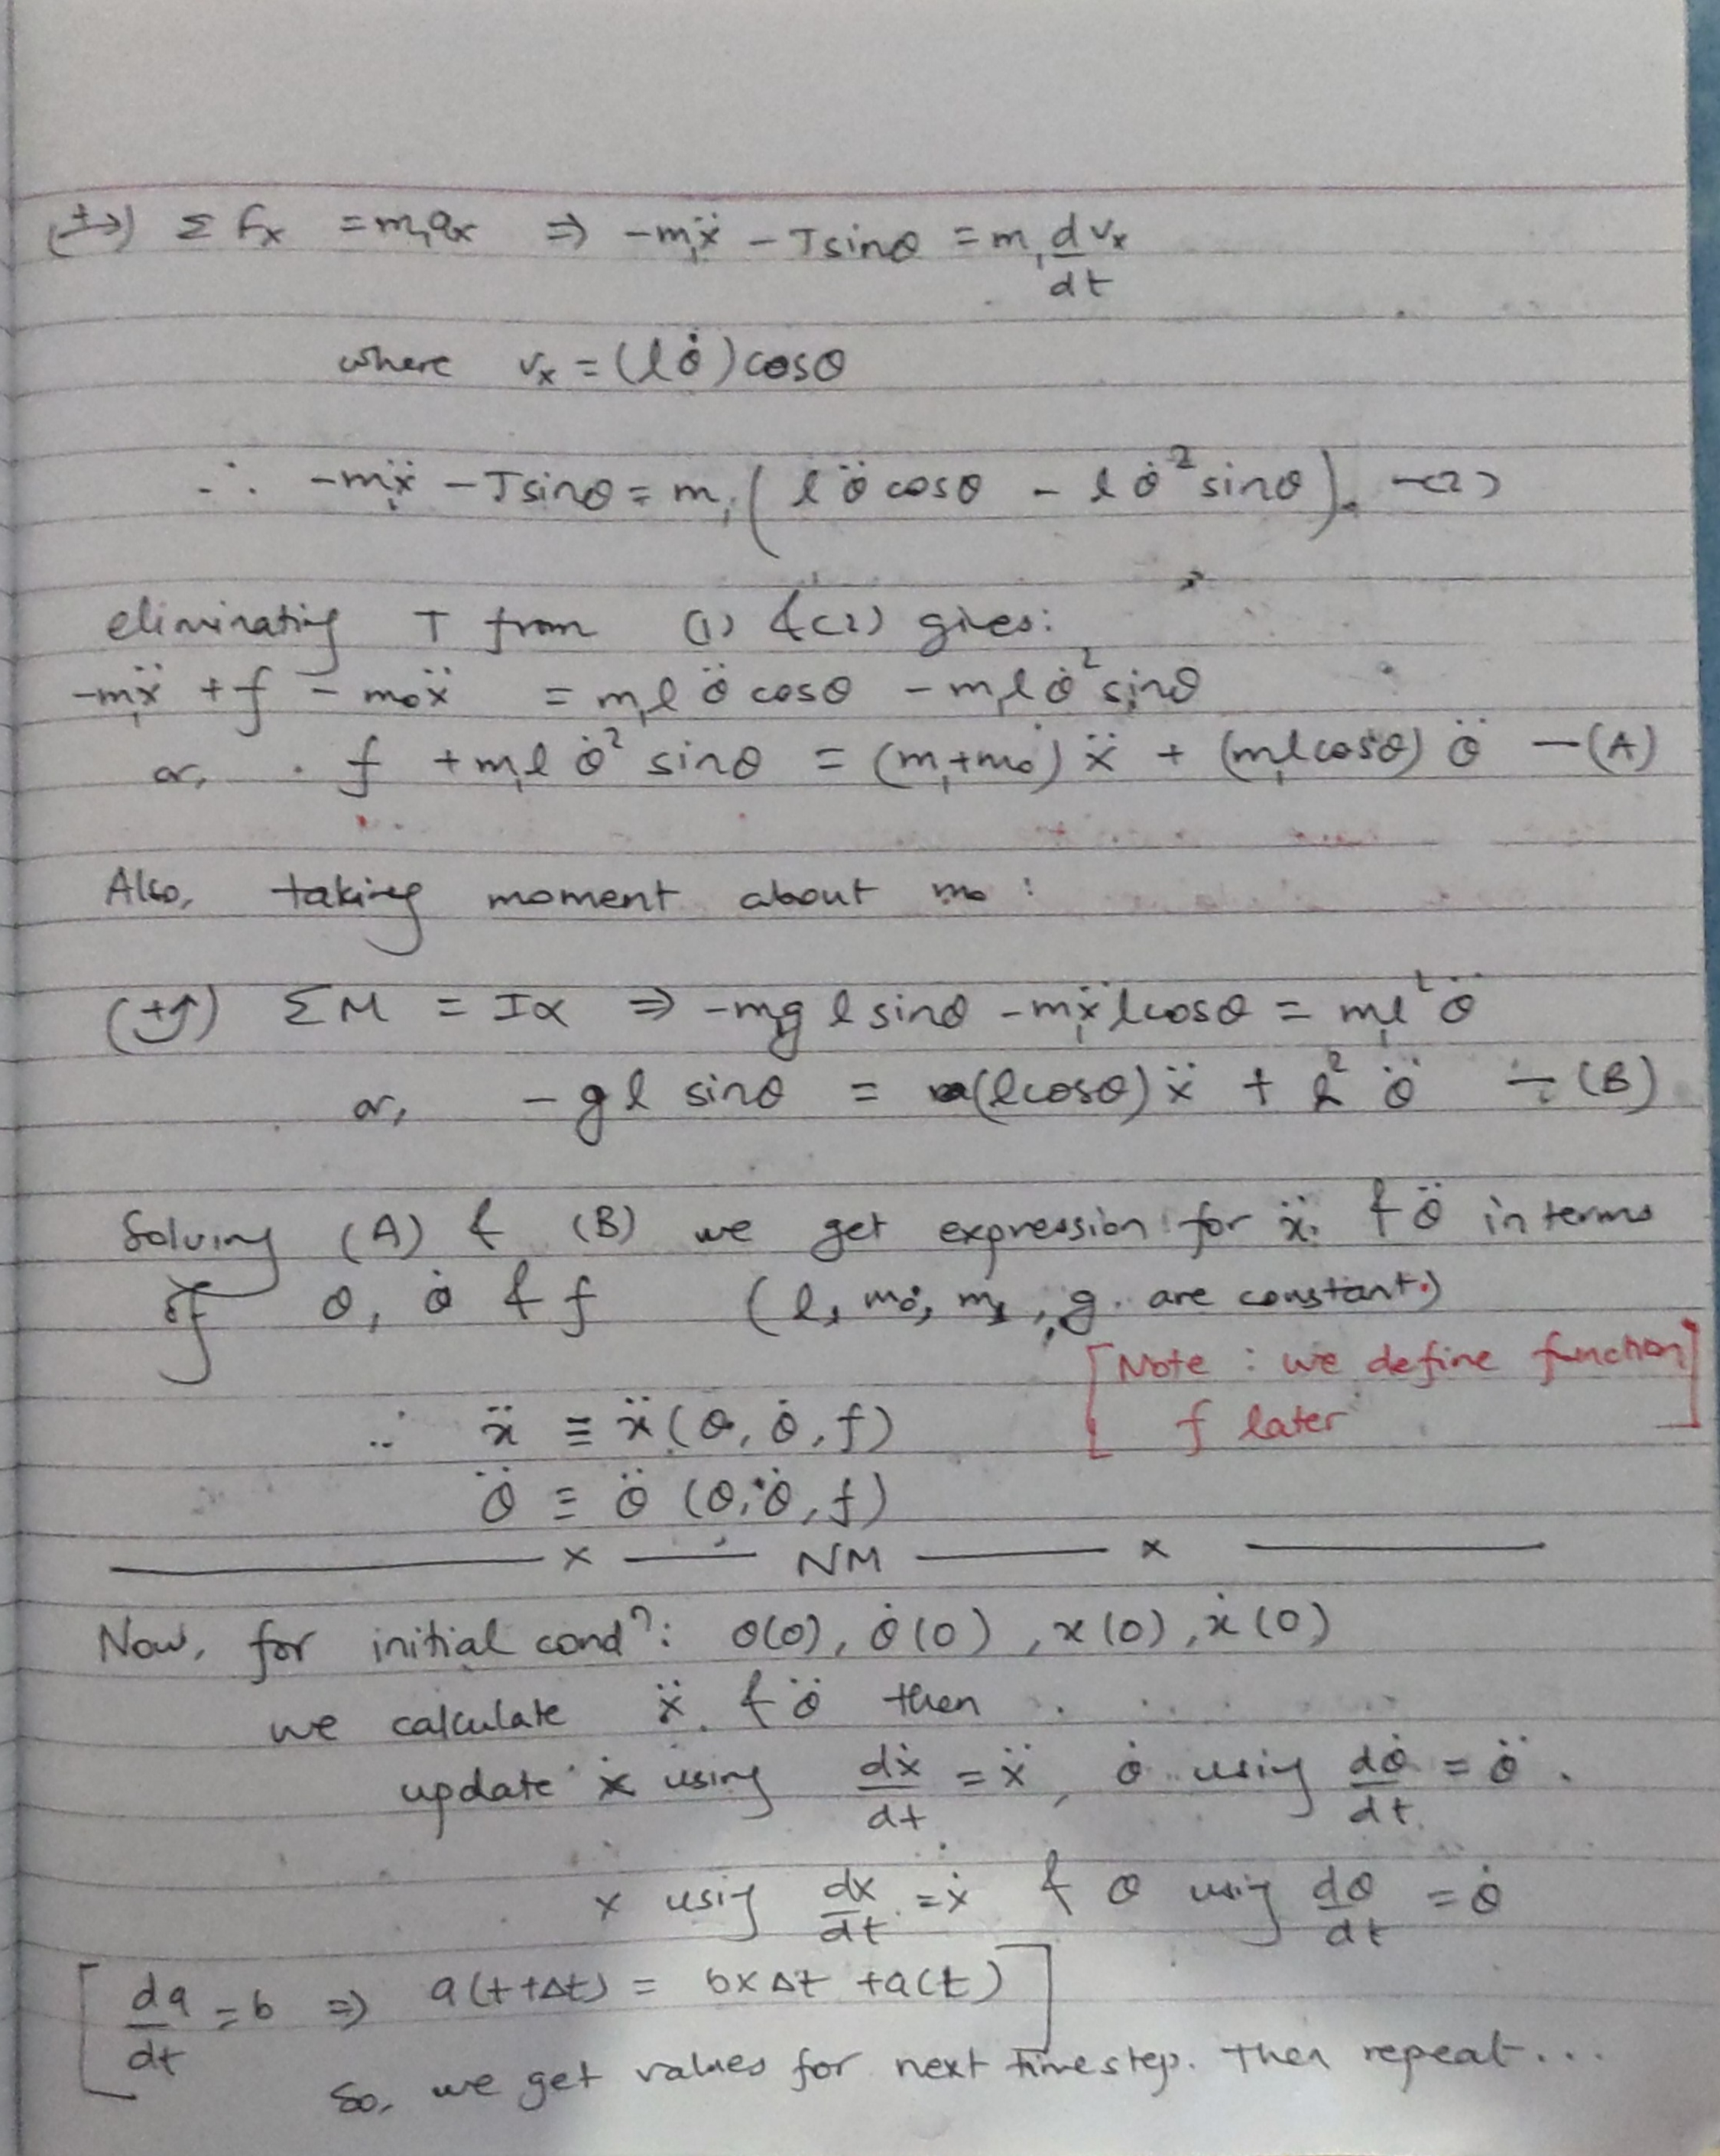 (+→) Σ Fx = m₁ax ⇒ -m₁ẍ - Tsinθ = m₁ dvx/dt
where vx = (lθ̇)cosθ
∴ -m₁ẍ - Tsinθ = m₁(lθ̈cosθ - lθ̇²sinθ). —(2)
eliminating T from (1) & (2) gives:
-m₁ẍ + f - m₀ẍ = m₁lθ̈cosθ - m₁lθ̇²sinθ
or, f + m₁lθ̇²sinθ = (m₁+m₀)ẍ + (m₁lcosθ)θ̈ —(A)
Also, taking moment about m₀ :
(+↺) ΣM = Iα ⇒ -m₁g l sinθ - m₁ẍlcosθ = m₁l²θ̈
or, -gl sinθ = (lcosθ)ẍ + l²θ̈ —(B)
Solving (A) & (B) we get expression for ẍ & θ̈ in terms
of θ, θ̇ & f (l, m₀, m₁, g are constant.)
[Note : we define function
f later]
∴ ẍ ≡ ẍ(θ, θ̇, f)
θ̈ ≡ θ̈(θ, θ̇, f)
——— x ——— NM ——— x ———
Now, for initial condⁿ: θ(0), θ̇(0), x(0), ẋ(0)
we calculate ẍ & θ̈ then
update ẋ using dẋ/dt = ẍ, θ̇ using dθ̇/dt = θ̈.
x using dx/dt = ẋ & θ using dθ/dt = θ̇
[da/dt = b ⇒ a(t+Δt) = b×Δt + a(t)]
So, we get values for next timestep. Then repeat...